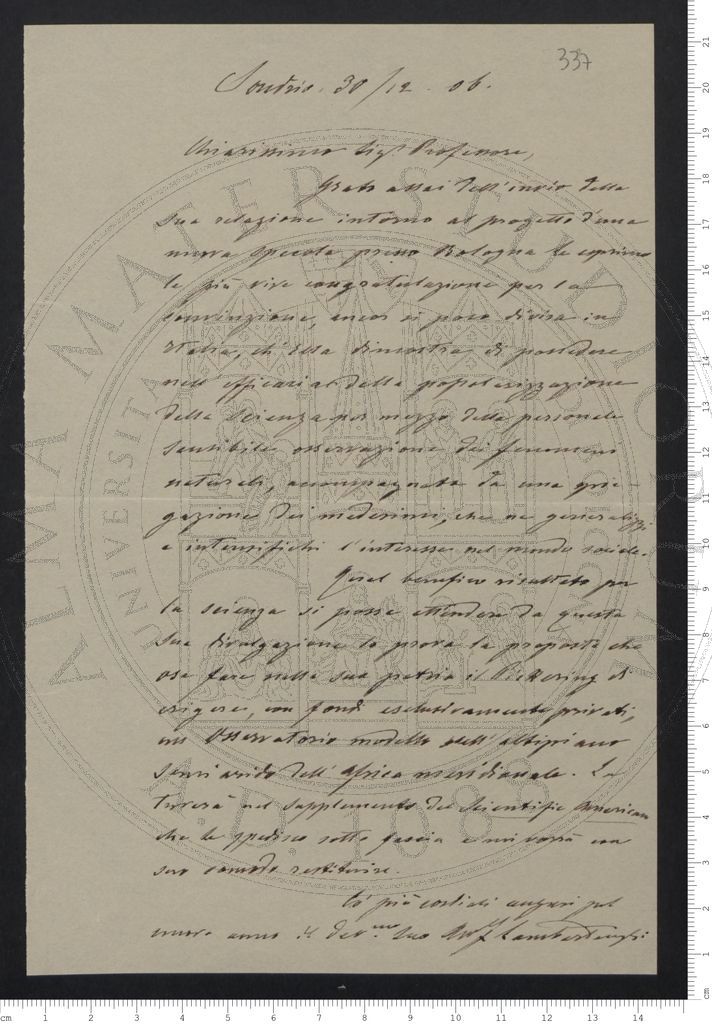 337
Sondrio. 30/12. 06.
Chiarissimo Sigr. Professore,
Grato assai dell'invio della
sua relazione intorno al progetto d'una
nuova specola presso Bologna le esprimo
le più vive congratulazione per la
convinzione, ancor sì poco divisa in
Italia, ch'Ella dimostra di possedere
nell'efficacia della popolarizzazione
della scienza per mezzo della personale
sensibile osservazione dei fenomeni
naturali, accompagnata da una spie-
gazione dei medesimi, che ne generalizzi
e intensifichi l'interesse nel mondo sociale.
Qual benefico risultato per
la scienza si possa attendere da questa
sua divulgazione lo prova la proposta che
osa fare nella sua patria il Pickering di
erigere, con fondi esclusivamente privati,
un Osservatorio modello nell'altipiano
semi arido dell'Africa meridionale. La
troverà nel supplemento del Scientific American
che le spedisco sotto fascia e mi vorrà con
suo comodo restituire.
Co' più cordiali auguri pel
nuovo anno il dev.mo suo
ALMA MATER STUDIORUM
UNIVERSITA
A.D. 1088